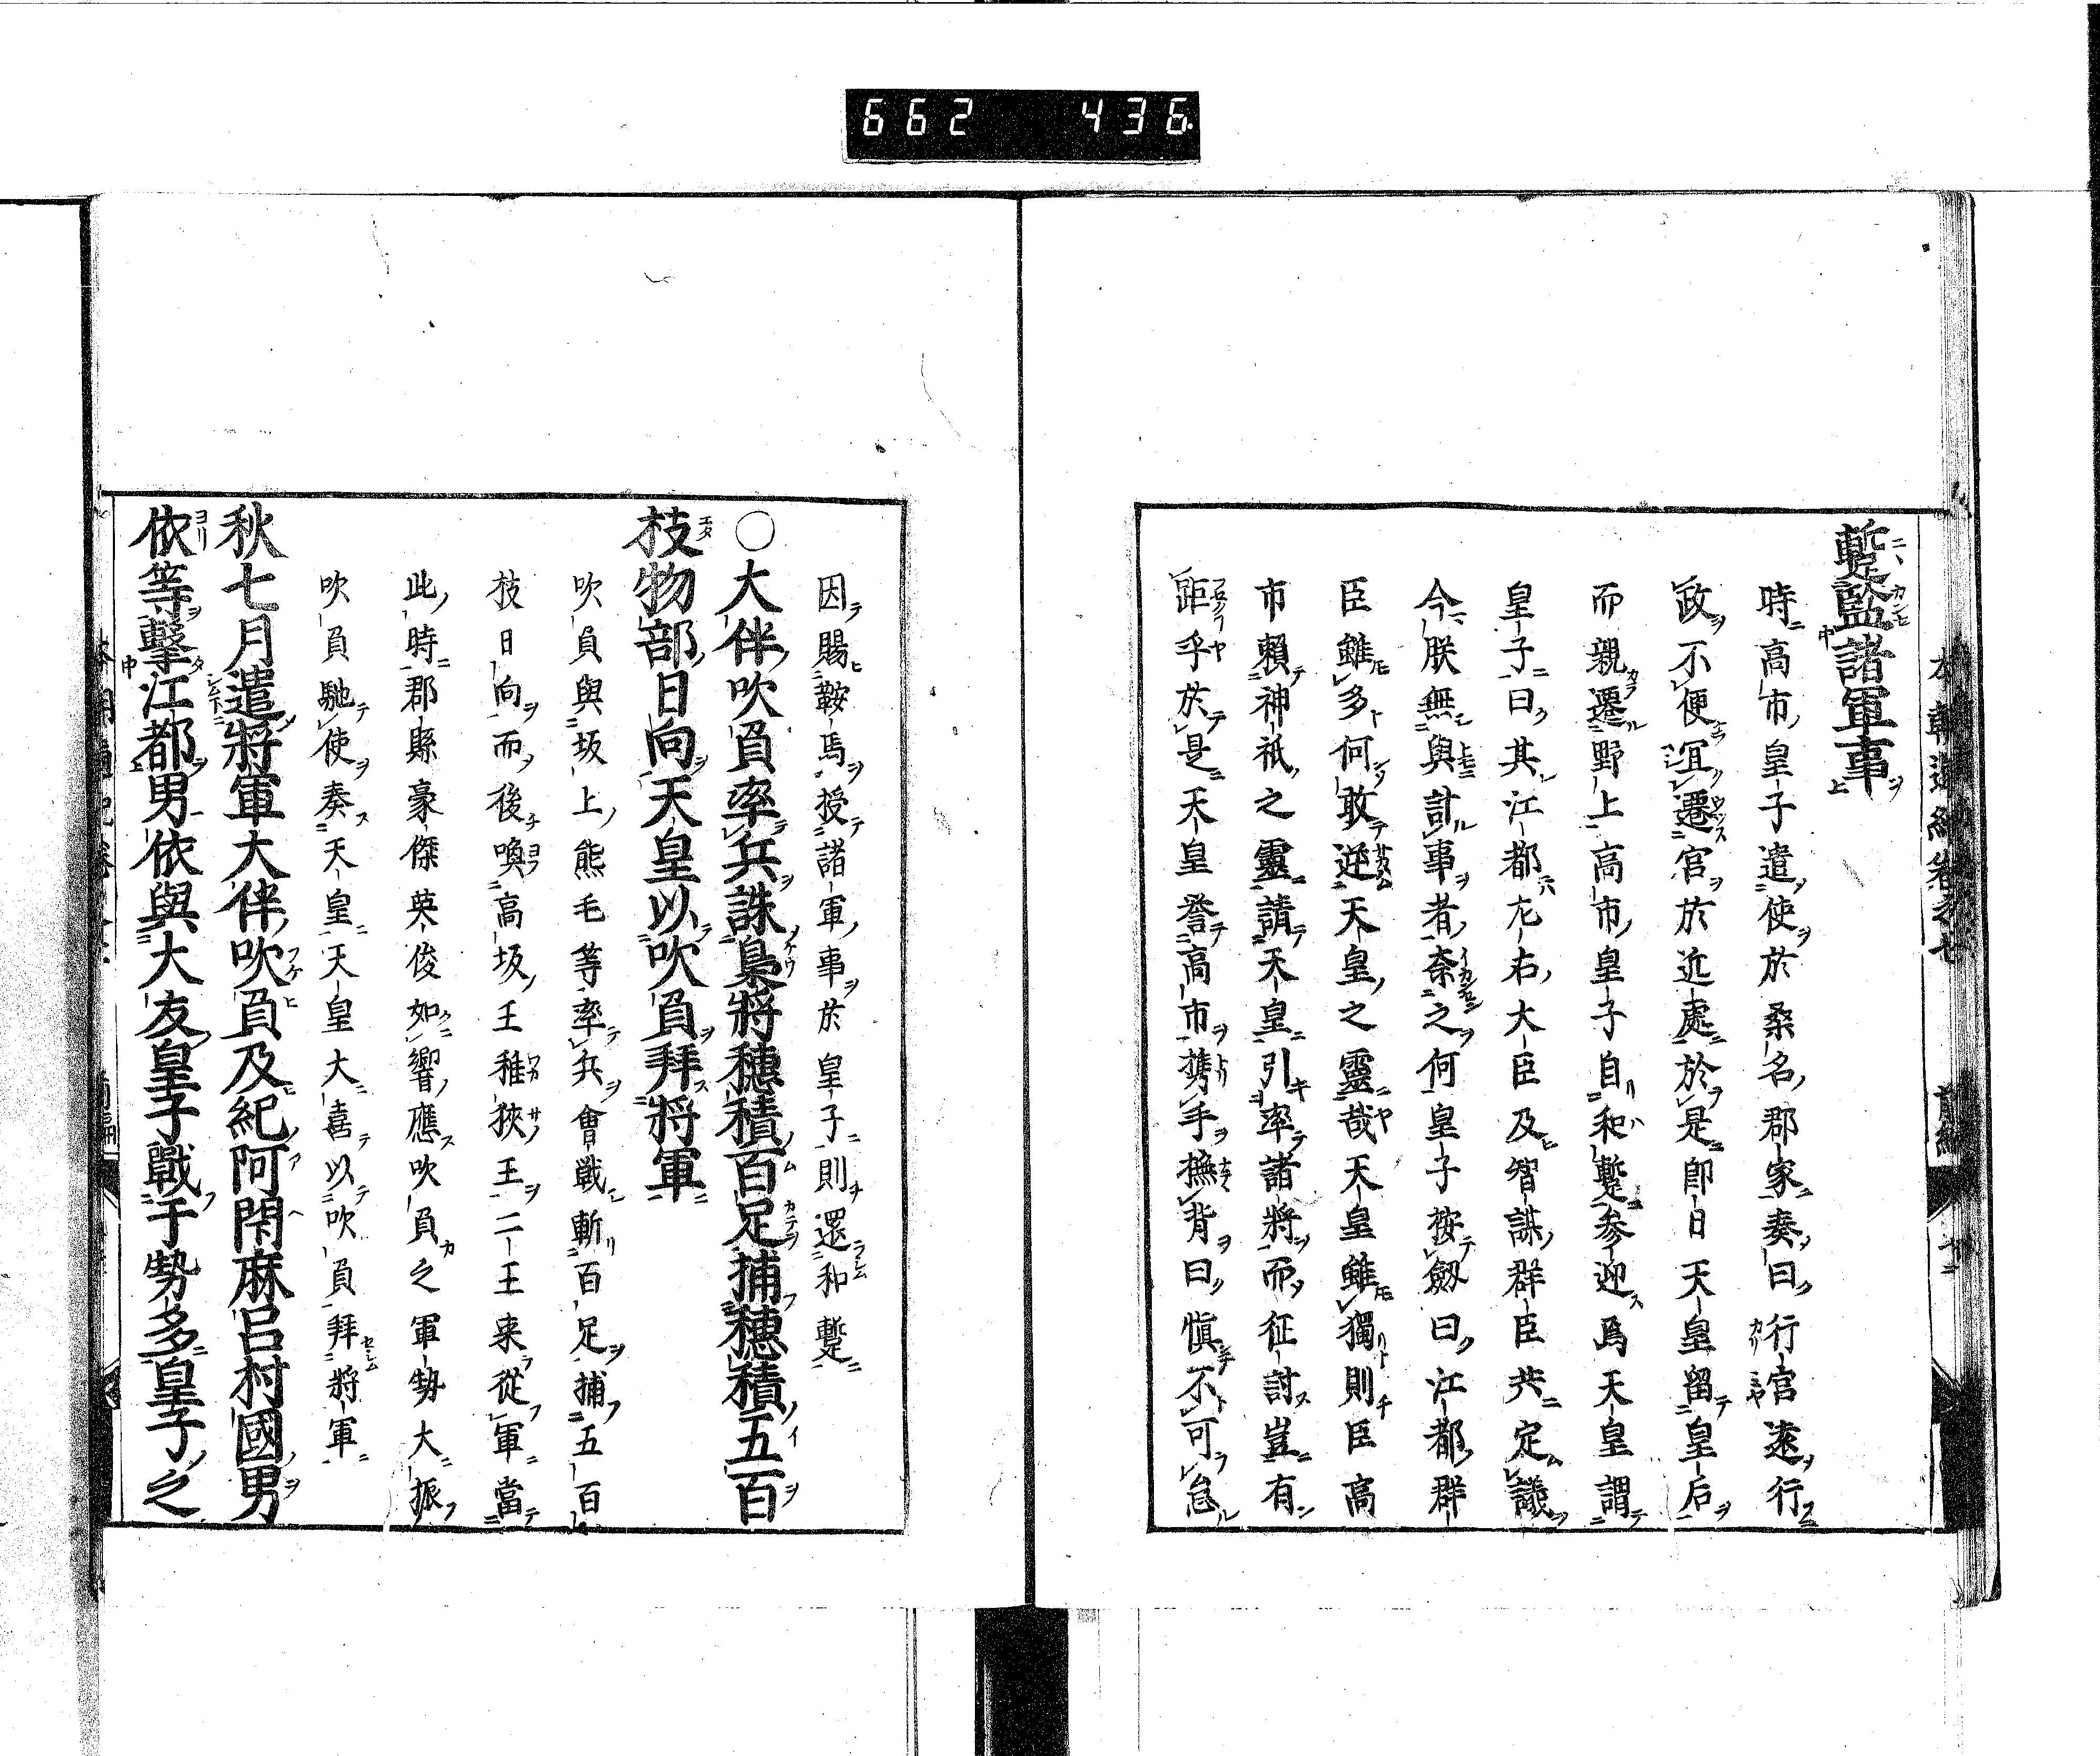 662 436
蹔監諸軍事
時高市皇子遣使於桑名郡家奏曰行宮遠行
政不便冝遷宮於近處於是即日天皇留皇后
而親遷野上高市皇子自和蹔参迎焉天皇謂
皇子曰其江都左右大臣及智謀群臣共定議
今朕無與計事者奈之何皇子按劔曰江都群
臣雖多何敢逆天皇之靈哉天皇雖獨則臣高
市頼神祇之靈請天皇引率諸將而征討豈有
距乎於是天皇誉高市携手撫背曰愼不可怠
因賜鞍馬授諸軍事於皇子則還和蹔
○大伴吹負率兵誅梟將穂積百足捕穂積五百
枝物部日向天皇以吹負拜將軍
吹負與坂上熊毛等率兵會戦斬百足捕五百
枝日向而後喚高坂王稚狹王二王来從軍當
此時郡縣豪傑英俊如響應吹負之軍勢大振
吹負馳使奏天皇天皇大喜以吹負拜將軍
秋七月遣將軍大伴吹負及紀阿閇麻呂村國男
依等擊江都男依與大友皇子戰于勢多皇子之